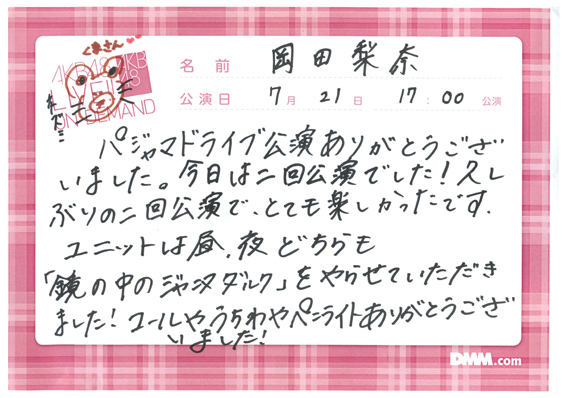 くまさん
AKB48
LIVE!!
ON DEMAND
名前 岡田梨奈
公演日 7月21日 17:00公演
パジャマドライブ公演ありがとうござ
いました。今日は二回公演でした!久し
ぶりの二回公演で、とても楽しかったです.
ユニットは昼,夜どちらも
「鏡の中のジャンヌダルク」をやらせていただき
ました!コールやうちわやペンライトありがとうござ
いました!
DMM.com